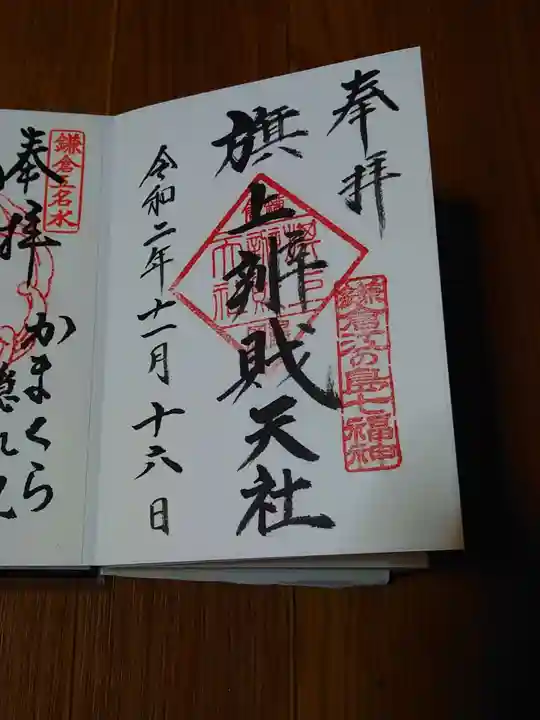 奉拝
鎌倉江の島七福神
旗上辨財天社
令和二年十一月十六日
鎌倉五名水
奉拝
かまくら